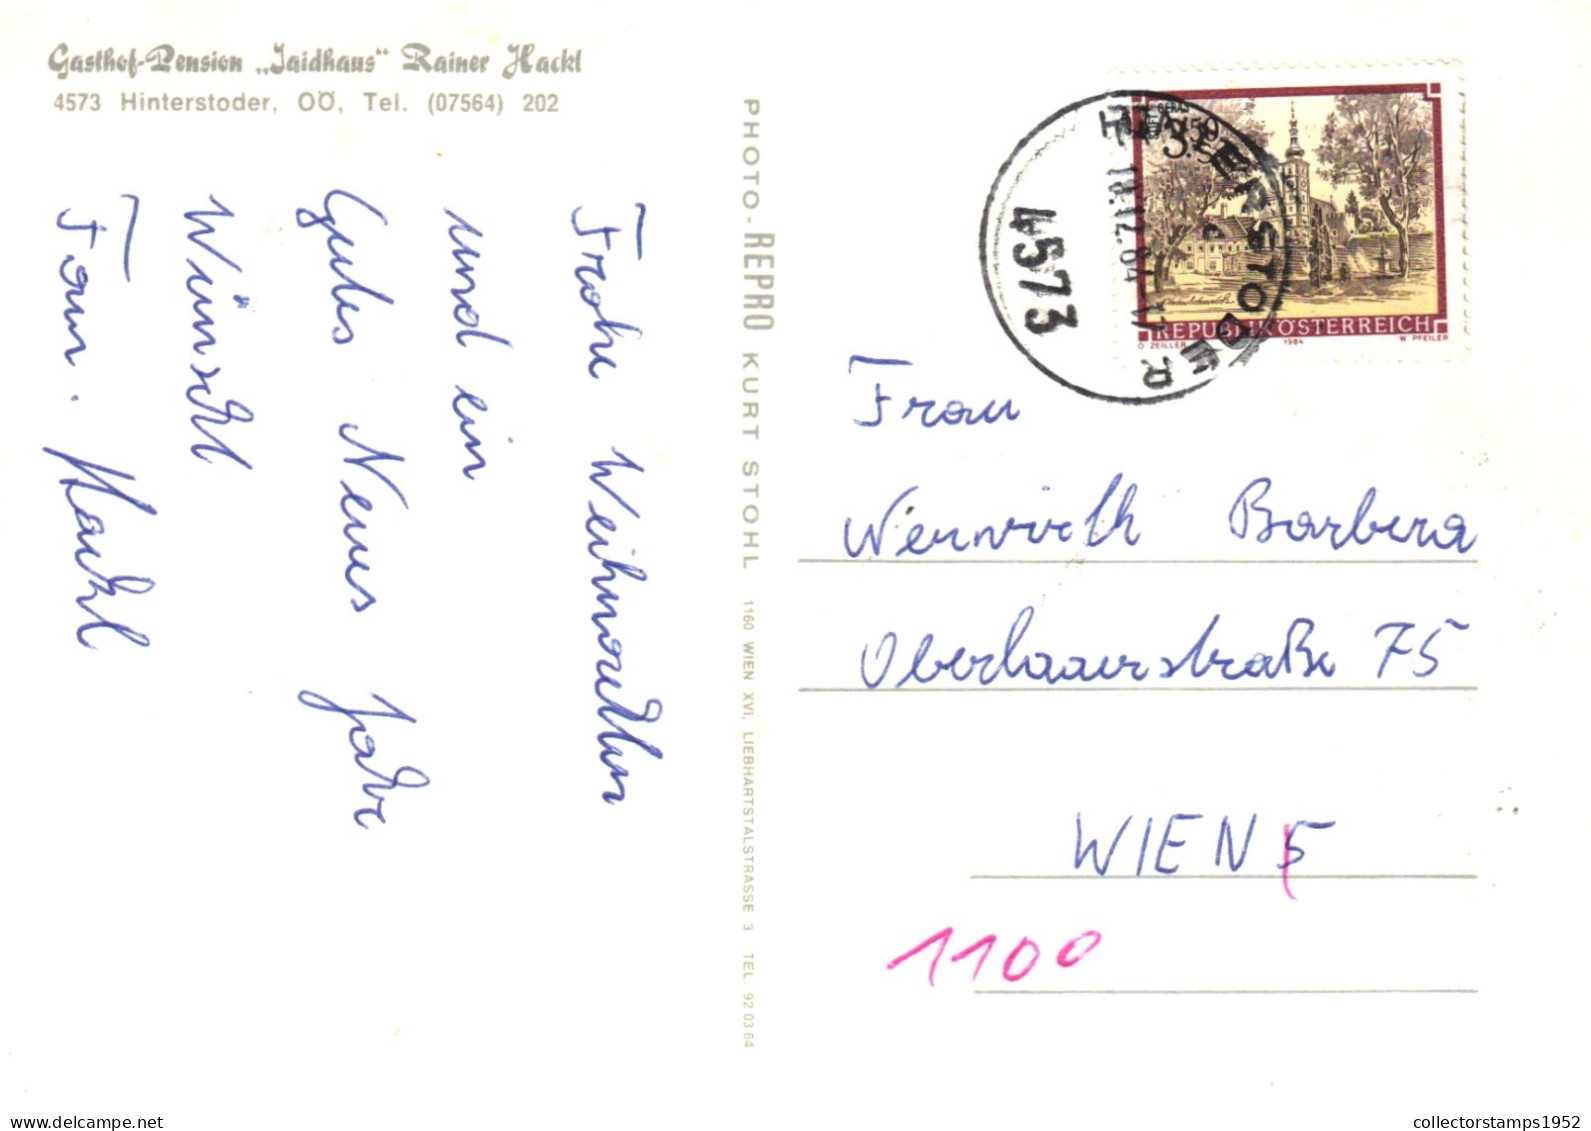 Gasthof-Pension „Jaidhaus“ Rainer Hackl
4573 Hinterstoder, OÖ, Tel. (07564) 202
Frohe Weihnachten
und ein
Gutes Neues Jahr
Wünscht
Fam. Hackl
PHOTO-REPRO KURT STOHL 1160 WIEN XVI, LIEBHARTSTALSTRASSE 3 TEL. 92 03 64
HINTERSTODER
18.12.84
4573
STIFT GERAS
3.50
REPUBLIK ÖSTERREICH
O. ZEILLER 1984 W. PFEILER
Frau
Barbera
Oberlaaerstraße 75
WIEN 5
1100
collectorstamps1952